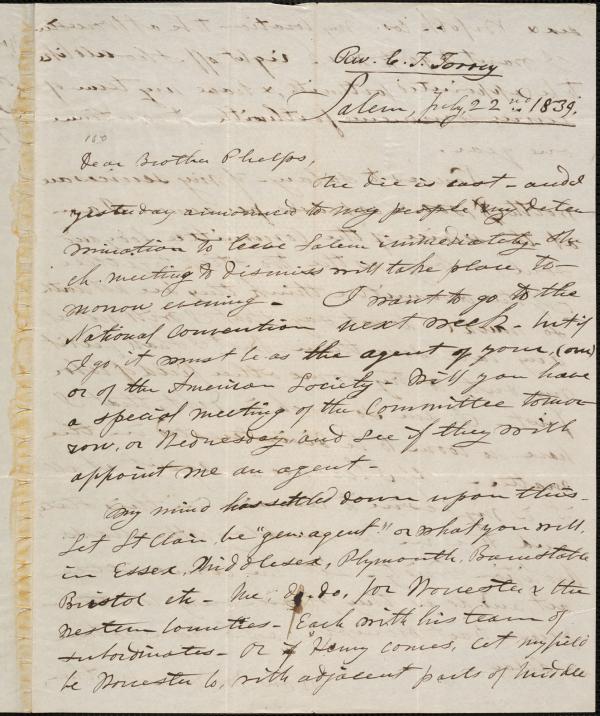 Rev. C. T. Torrey
Salem, July, 22nd 1839.
Dear Brother Phelps,
The die is cast - and I
yesterday announced to my people my deter
mination to leave Salem immediately. The
ch. meeting to dismiss will take place to-
morrow evening - I want to go to the
National Convention next week - but if
I go it must be as the agent of your, (our)
or of the American Society - Will you have
a special meeting of the Committee tomor
row, or Wednesday and see if they will
appoint me an agent -
My mind has settled down upon this -
Let St Clair be "gen. agent" or what you will,
in Essex, Middlesex, Plymouth, Barnstable
Bristol &c - Me, do. do. for Worcester & the
Western Counties - Each with his team of
subordinates - Or if Henry comes, let my field
be Worcester Co, with adjacent parts of Middle